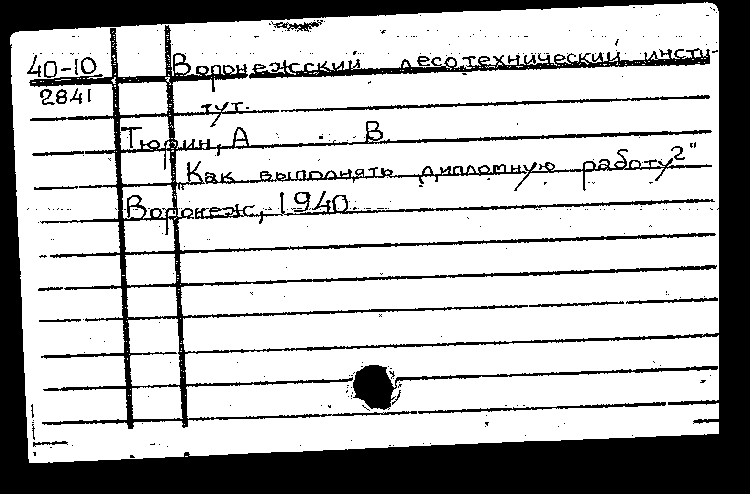 40-10 Воронежский лесотехнический инсти-
2841 тут.
Тюрин, А. В.
"Как выполнять дипломную работу?"
Воронеж, 1940.